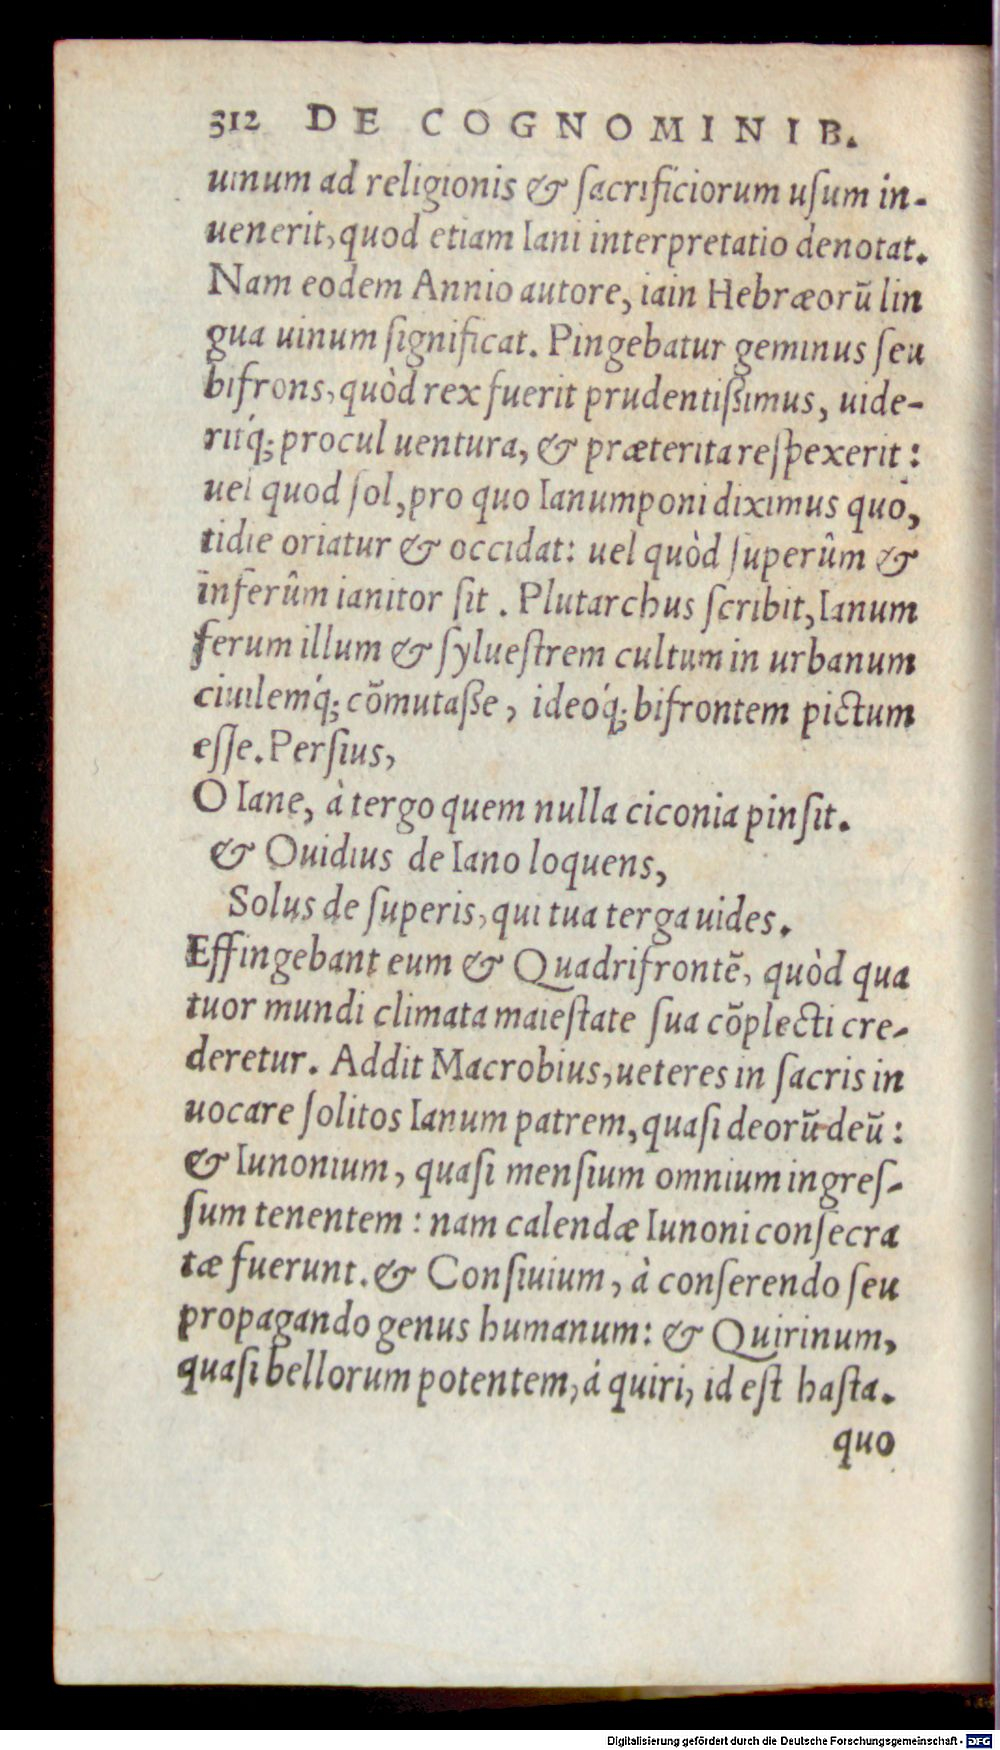 312 DE COGNOMINIB.
uinum ad religionis & sacrificiorum usum in-
uenerit, quod etiam Iani interpretatio denotat.
Nam eodem Annio autore, iain Hebræorũ lin
gua uinum significat. Pingebatur geminus seu
bifrons, quòd rex fuerit prudentißimus, uide-
ritq́; procul uentura, & præterita respexerit:
uel quod sol, pro quo Ianum poni diximus quo,
tidie oriatur & occidat: uel quòd superûm &
inferûm ianitor sit. Plutarchus scribit, Ianum
ferum illum & syluestrem cultum in urbanum
ciuilemq́; cõmutaße, ideoq́; bifrontem pictum
esse. Persius,
O Iane, à tergo quem nulla ciconia pinsit.
& Ouidius de Iano loquens,
Solus de superis, qui tua terga uides.
Effingebant eum & Quadrifrontẽ, quòd qua
tuor mundi climata maiestate sua cõplecti cre-
deretur. Addit Macrobius, ueteres in sacris in
uocare solitos Ianum patrem, quasi deorũ deũ:
& Iunonium, quasi mensium omnium ingres-
sum tenentem: nam calendæ Iunoni consecra
tæ fuerunt. & Consiuium, à conserendo seu
propagando genus humanum: & Quirinum,
quasi bellorum potentem, á quiri, id est hasta.
quo
Digitalisierung gefördert durch die Deutsche Forschungsgemeinschaft - DFG